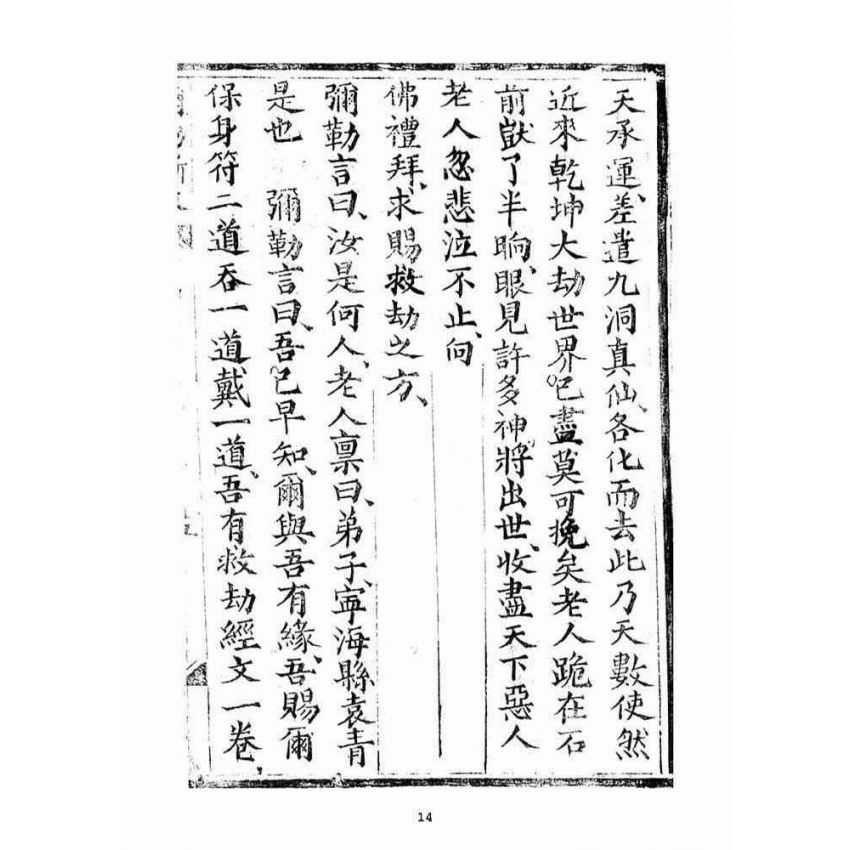 天承運、差遣九洞真仙、各化而去此乃天數使然
近來乾坤大劫世界已盡莫可挽矣老人跪在石
前㽎了半晌、眼見許多神將出世、收盡天下惡人
老人忽悲泣不止、向
佛禮拜、求賜救劫之方、
彌勒言曰、汝是何人、老人禀曰、弟子、寧海縣袁青
是也　彌勒言曰、吾已早知、爾與吾有緣、吾賜爾
保身符二道吞一道、戴一道、吾有救劫經文一卷、
14